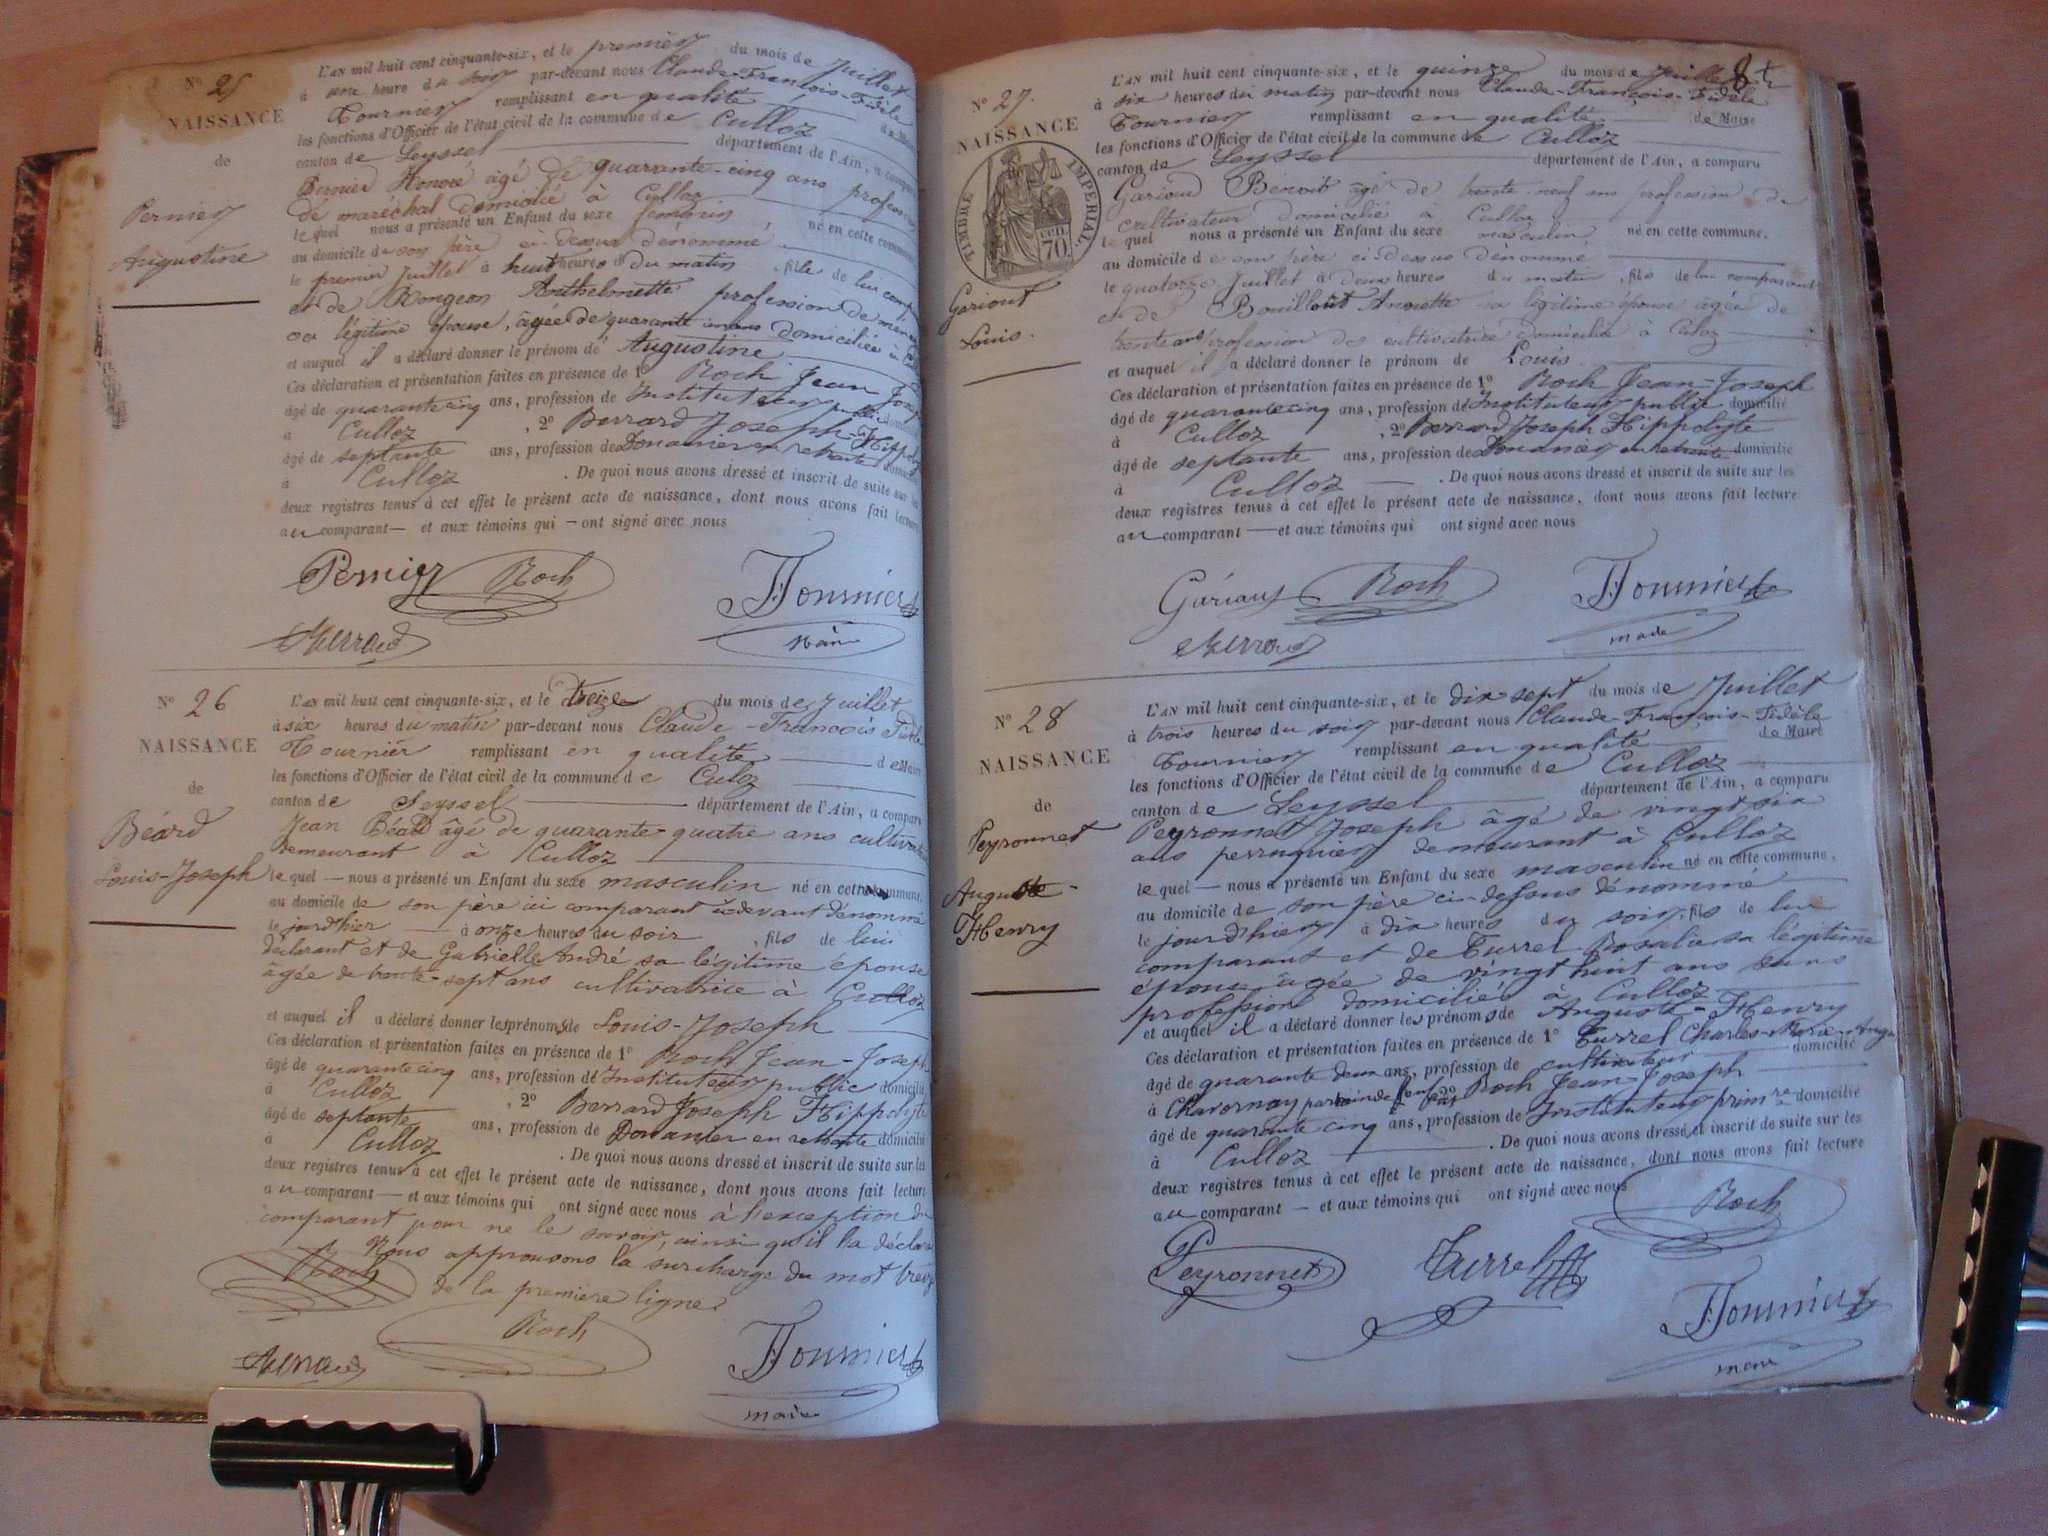 N° 25
NAISSANCE
de
Pernier
Augustine
L'AN mil huit cent cinquante-six, et le premier du mois de Juillet
à une heure du soir par-devant nous Claude-François-Fidèle
Tournier remplissant en qualité de Maire
les fonctions d'Officier de l'état civil de la commune de Culloz
canton de Seyssel département de l'Ain, a comparu
Pernier Honoré âgé de quarante-cinq ans profession
de maréchal domicilié à Culloz
lequel nous a présenté un Enfant du sexe féminin né en cette commune
au domicile de son père ci-dessus dénommé
le premier Juillet à huit heures du matin, fille de lui comparant
et de Rongeon Anthelmette profession de
sa légitime épouse, âgée de quarante ans domiciliée à
et auquel il a déclaré donner le prénom de Augustine
Ces déclaration et présentation faites en présence de 1° Roch Jean Joseph
âgé de quarante cinq ans, profession de Instituteur public domicilié
à Culloz, 2° Berrard Joseph-Hippolyte
âgé de septante ans, profession de Douanier en retraite domicilié
à Culloz. De quoi nous avons dressé et inscrit de suite sur les
deux registres tenus à cet effet le présent acte de naissance, dont nous avons fait lecture
au comparant — et aux témoins qui — ont signé avec nous
Pernier Roch Tournier
Berrard maire
N° 26
NAISSANCE
de
Béard
Louis-Joseph
L'AN mil huit cent cinquante-six, et le treize du mois de Juillet
à six heures du matin par-devant nous Claude-François Fidèle
Tournier remplissant en qualité de Maire
les fonctions d'Officier de l'état civil de la commune de Culoz
canton de Seyssel département de l'Ain, a comparu
Jean Béard âgé de quarante-quatre ans cultivateur
demeurant à Culloz
lequel — nous a présenté un Enfant du sexe masculin né en cette commune,
au domicile de son père ici comparant ci devant dénommé
le jourd'hier à onze heures du soir, fils de lui
déclarant et de Gabrielle André sa légitime épouse
âgée de trente-sept ans cultivatrice à Culloz
et auquel il a déclaré donner les prénoms de Louis-Joseph
Ces déclaration et présentation faites en présence de 1° Roch Jean-Joseph
âgé de quarante cinq ans, profession de Instituteur public domicilié
à Culloz, 2° Berrard Joseph Hippolyte
âgé de septante ans, profession de Douanier en retraite domicilié
à Culloz. De quoi nous avons dressé et inscrit de suite sur les
deux registres tenus à cet effet le présent acte de naissance, dont nous avons fait lecture
au comparant — et aux témoins qui ont signé avec nous à l'exception du
comparant pour ne le savoir, ainsi qu'il l'a déclaré
Roch Nous approuvons la surcharge du mot treize
de la première ligne
Roch Tournier
Berrard maire
8
N° 27
NAISSANCE
TIMBRE IMPÉRIAL
70
Gariout
Louis.
L'AN mil huit cent cinquante-six, et le quinze du mois de Juillet
à six heures du matin par-devant nous Claude-François-Fidèle
Tournier remplissant en qualité de Maire
les fonctions d'Officier de l'état civil de la commune de Culloz
canton de Seyssel département de l'Ain, a comparu
Garioud Benoit âgé de trente neuf ans profession de
cultivateur domicilié à Culloz
lequel nous a présenté un Enfant du sexe masculin né en cette commune.
au domicile de son père ci-dessus dénommé
le quatorze Juillet à deux heures du matin, fils de lui comparant
et de Bouilloud Annette sa légitime épouse âgée de
trente ans profession de cultivatrice domiciliée à Culoz
et auquel il a déclaré donner le prénom de Louis
Ces déclaration et présentation faites en présence de 1° Roch Jean-Joseph
âgé de quarante cinq ans, profession de Instituteur public domicilié
à Culloz, 2° Berrard Joseph Hippolyte
âgé de septante ans, profession de Douanier en retraite domicilié
à Culloz. De quoi nous avons dressé et inscrit de suite sur les
deux registres tenus à cet effet le présent acte de naissance, dont nous avons fait lecture
au comparant — et aux témoins qui ont signé avec nous
Roch Tournier
Berrard maire
N° 28
NAISSANCE
de
Peyronnet
Auguste-
Henry
L'AN mil huit cent cinquante-six, et le dix-sept du mois de Juillet
à trois heures du soir par-devant nous Claude-François-Fidèle
Tournier remplissant en qualité de Maire
les fonctions d'Officier de l'état civil de la commune de Culloz
canton de Seyssel département de l'Ain, a comparu
Peyronnet Joseph âgé de vingt six
ans perruquier demeurant à Culloz
lequel — nous a présenté un Enfant du sexe masculin né en cette commune,
au domicile de son père ci-dessus dénommé
le jourd'hier à dix heures du soir, fils de lui
comparant et de Turrel Rosalie sa légitime
épouse âgée de vingt huit ans sans
profession domiciliée à Culloz
et auquel il a déclaré donner les prénoms de Auguste-Henry
Ces déclaration et présentation faites en présence de 1° Turrel Charles-Marie-
âgé de quarante deux ans, profession de cultivateur domicilié
à Chavornay 2° Roch Jean-Joseph
âgé de quarante cinq ans, profession de Instituteur primre domicilié
à Culloz. De quoi nous avons dressé et inscrit de suite sur les
deux registres tenus à cet effet le présent acte de naissance, dont nous avons fait lecture
au comparant — et aux témoins qui ont signé avec nous
Roch
Peyronnet Turrel
Tournier
maire